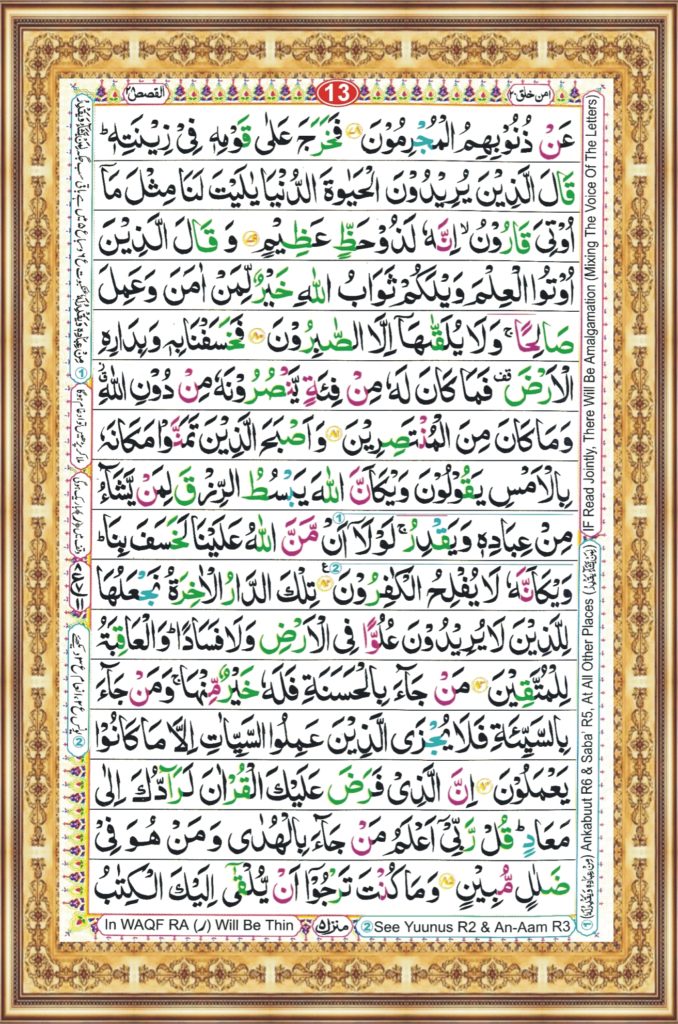 القصص ٢٨
13
امن خلق ٢٠
عَنْ ذُنُوْبِهِمُ الْمُجْرِمُوْنَ ۝٧٨ فَخَرَجَ عَلٰى قَوْمِهٖ فِيْ زِيْنَتِهٖ ؕ
قَالَ الَّذِيْنَ يُرِيْدُوْنَ الْحَيٰوةَ الدُّنْيَا يٰلَيْتَ لَنَا مِثْلَ مَاۤ
اُوْتِيَ قَارُوْنُ ۙ اِنَّهٗ لَذُوْ حَظٍّ عَظِيْمٍ ۝٧٩ وَ قَالَ الَّذِيْنَ
اُوْتُوا الْعِلْمَ وَيْلَكُمْ ثَوَابُ اللّٰهِ خَيْرٌ لِّمَنْ اٰمَنَ وَعَمِلَ
صَالِحًا ۚ وَلَا يُلَقّٰىهَاۤ اِلَّا الصّٰبِرُوْنَ ۝٨٠ فَخَسَفْنَا بِهٖ وَبِدَارِهِ
الْاَرْضَ ۫ فَمَا كَانَ لَهٗ مِنْ فِئَةٍ يَّنْصُرُوْنَهٗ مِنْ دُوْنِ اللّٰهِ ۗ
وَمَا كَانَ مِنَ الْمُنْتَصِرِيْنَ ۝٨١ وَاَصْبَحَ الَّذِيْنَ تَمَنَّوْا مَكَانَهٗ
بِالْاَمْسِ يَقُوْلُوْنَ وَيْكَاَنَّ اللّٰهَ يَبْسُطُ الرِّزْقَ لِمَنْ يَّشَآءُ
مِنْ عِبَادِهٖ وَيَقْدِرُ ۚ لَوْلَاۤ اَنْ مَّنَّ اللّٰهُ عَلَيْنَا لَخَسَفَ بِنَا ؕ
وَيْكَاَنَّهٗ لَا يُفْلِحُ الْكٰفِرُوْنَ ۝٨٢ تِلْكَ الدَّارُ الْاٰخِرَةُ نَجْعَلُهَا
لِلَّذِيْنَ لَا يُرِيْدُوْنَ عُلُوًّا فِي الْاَرْضِ وَلَا فَسَادًا ؕ وَالْعَاقِبَةُ
لِلْمُتَّقِيْنَ ۝٨٣ مَنْ جَآءَ بِالْحَسَنَةِ فَلَهٗ خَيْرٌ مِّنْهَا ۚ وَمَنْ جَآءَ
بِالسَّيِّئَةِ فَلَا يُجْزَى الَّذِيْنَ عَمِلُوا السَّيِّاٰتِ اِلَّا مَا كَانُوْا
يَعْمَلُوْنَ ۝٨٤ اِنَّ الَّذِيْ فَرَضَ عَلَيْكَ الْقُرْاٰنَ لَرَآدُّكَ اِلٰى
مَعَادٍ ؕ قُلْ رَّبِّيْۤ اَعْلَمُ مَنْ جَآءَ بِالْهُدٰى وَمَنْ هُوَ فِيْ
ضَلٰلٍ مُّبِيْنٍ ۝٨٥ وَمَا كُنْتَ تَرْجُوْۤا اَنْ يُّلْقٰۤى اِلَيْكَ الْكِتٰبُ
IF Read Jointly, There Will Be Amalgamation (Mixing The Voice Of The Letters)
① (مِنْ عِبَادِهٖ وَيَقْدِرُ لَهٗ) Ankabuut R6 & Saba' R5, At All Other Places
In WAQF RA (ر) Will Be Thin
منزل ۵
② See Yuunus R2 & An-Aam R3